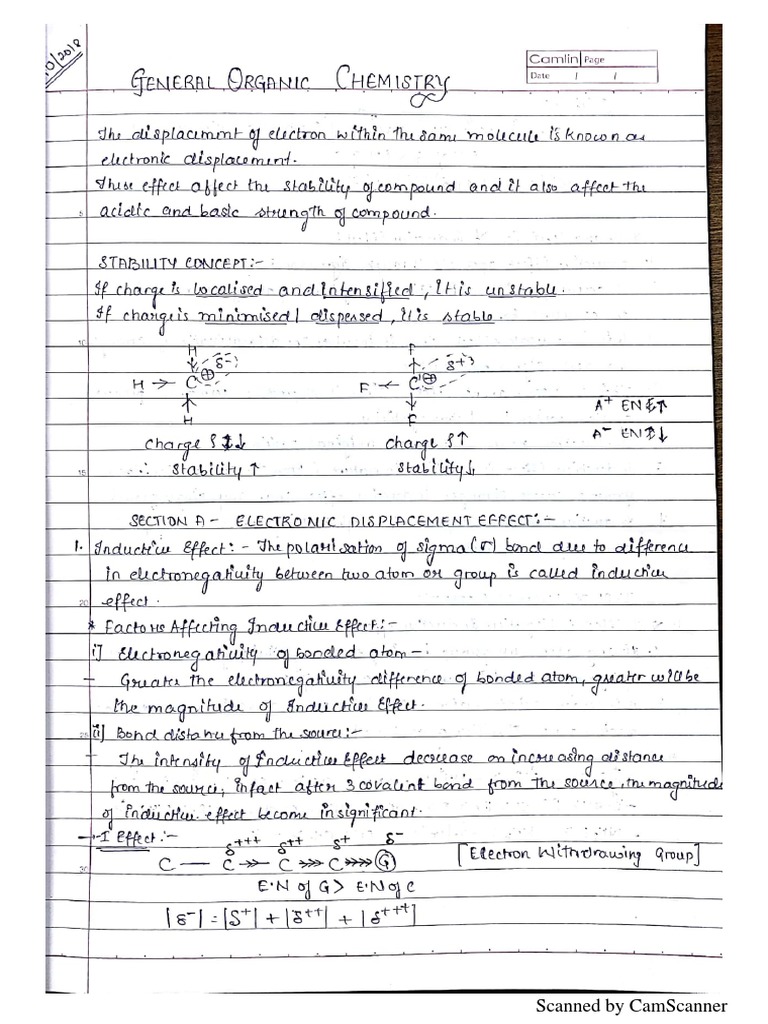 10/2018
Camlin Page
Date / /
GENERAL ORGANIC CHEMISTRY
The displacement of electron within the same molecule is known as
electronic displacement.
These effect affect the stability of compound and it also affect the
5 acidic and basic strength of compound.
STABILITY CONCEPT:-
If charge is localised and intensified, it is unstable.
If charge is minimised / dispersed, it is stable.
10
H F
δ- δ+
H → C ⊕ F ← C ⊕
H F
A+ EN ↑
A- EN ↓
charge ↓ charge ↑
15 ∴ stability ↑ stability ↓
SECTION A - ELECTRONIC DISPLACEMENT EFFECT:-
1. Inductive Effect:- The polarisation of sigma (σ) bond due to difference
in electronegativity between two atom or group is called inductive
20 effect.
* Factors Affecting Inductive Effect:-
i] Electronegativity of bonded atom -
- Greater the electronegativity difference of bonded atom, greater will be
the magnitude of Inductive Effect.
25 ii] Bond distance from the source:-
- The intensity of Inductive Effect decrease on increasing distance
from the source, infact after 3 covalent bond from the source, the magnitude
of inductive effect become insignificant.
→ -I Effect:- δ+++ δ++ δ+ δ-
30 C — C →> C →>> C →>>> G [Electron Withdrawing Group]
E.N of G > E.N of C
|δ-| = |δ+| + |δ++| + |δ+++|
Scanned by CamScanner